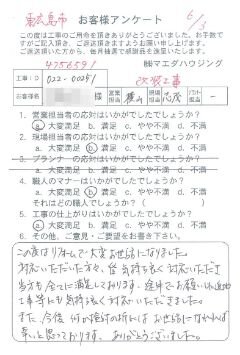 東広島市 お客様アンケート 6/3
この度は工事のご用命を頂きありがとうございました。お手数で
すがご記入頂き、ご返送頂きますようお願い申し上げます。
ご返送頂きますと、毎月抽選で感謝品を進呈いたします。
4256591 ㈱マエダハウジング
工事ID 022-00291 改装工事
お客様名 営業担当 横山 現場担当
1. 営業担当者の応対はいかがでしたでしょうか？
a 大変満足 b. 満足 c. やや不満 d. 不満
2. 現場担当者の応対はいかがでしたでしょうか？
a. 大変満足 b 満足 c. やや不満 d. 不満
3. プランナーの応対はいかがでしたでしょうか？
a. 大変満足 b. 満足 c. やや不満 d. 不満
4. 職人のマナーはいかがでしたでしょうか？
a. 大変満足 b 満足 c. やや不満 d. 不満
それはどの職人でしょうか？（ ）
5. 工事の仕上がりはいかがでしたでしょうか？
a 大変満足 b. 満足 c. やや不満 d. 不満
6. その他、ご意見・ご要望をお書き下さい。
この度はリフォームで大変お世話になりました。
対応いただいた方々、皆気持ち良く対応いただき
当方も全てに満足しております。途中でお願いした追加
工事等にも気持ち良く対応いただきました。
また、今後 何か検討の折にはお世話になれれば
幸いと思っております。ありがとうございました。